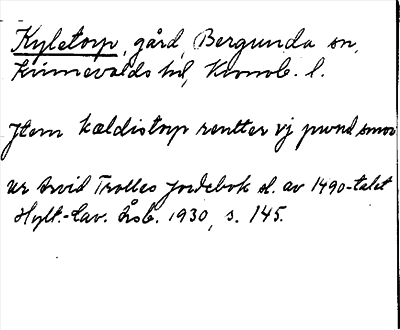 Kyletorp, gård, Bergunda sn,
Kinnevalds hd, Kronob. l.
Jtem kældistorp rentter vj pwnd smør
Ur Arvid Trolles Jordebok sl. av 1490-talet
Hylt.-Cav. Årsb. 1930, s. 145.